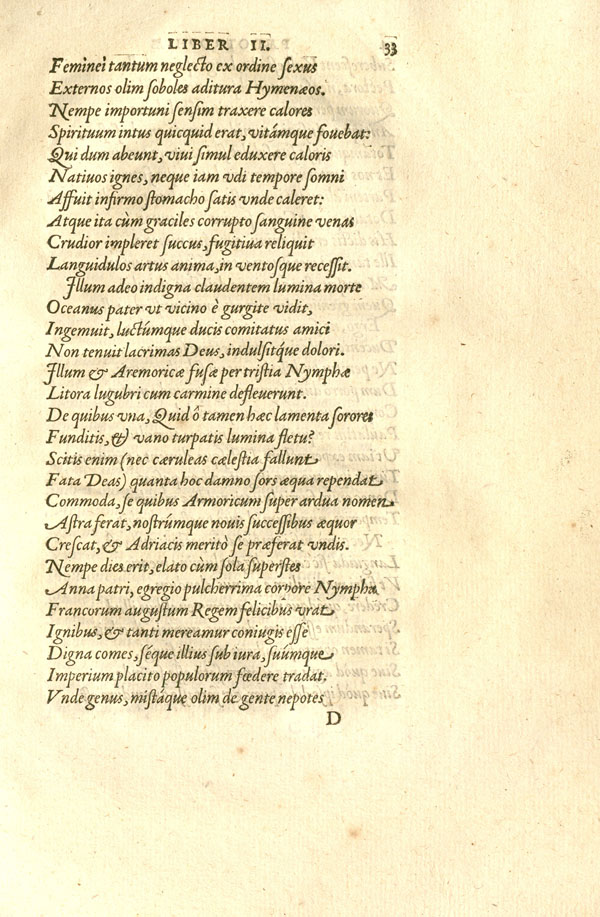 LIBER II. 33
Feminei tantum neglecto ex ordine sexus
Externos olim soboles aditura Hymenæos.
Nempe importuni sensim traxere calores
Spirituum intus quicquid erat, vitámque fouebat:
Qui dum abeunt, viui simul eduxere caloris
Natiuos ignes, neque iam vdi tempore somni
Affuit infirmo stomacho satis vnde caleret:
Atque ita cùm graciles corrupto sanguine venas
Crudior impleret succus, fugitiua reliquit
Languidulos artus anima, in ventosque recessit.
Illum adeo indigna claudentem lumina morte
Oceanus pater vt vicino è gurgite vidit,
Ingemuit, luctúmque ducis comitatus amici
Non tenuit lacrimas Deus, indulsitq́ue dolori.
Illum & Aremoricæ fusæ per tristia Nymphæ
Litora lugubri cum carmine defleuerunt.
De quibus vna, Quid ô tamen hæc lamenta sorores
Funditis, & vano turpatis lumina fletu?
Scitis enim (nec cæruleas cælestia fallunt
Fata Deas) quanta hoc damno sors æqua rependat
Commoda, se quibus Armoricum super ardua nomen
Astra ferat, nostrúmque nouis successibus æquor
Crescat, & Adriacis meritò se præferat vndis.
Nempe dies erit, elato cùm sola superstes
Anna patri, egregio pulcherrima corpore Nympha
Francorum augustum Regem felicibus vrat
Ignibus, & tanti mereamur coniugis esse
Digna comes, séque illius sub iura, suúmque
Imperium placito populorum fœdere tradat.
Vnde genus, mistáque olim de gente nepotes
D